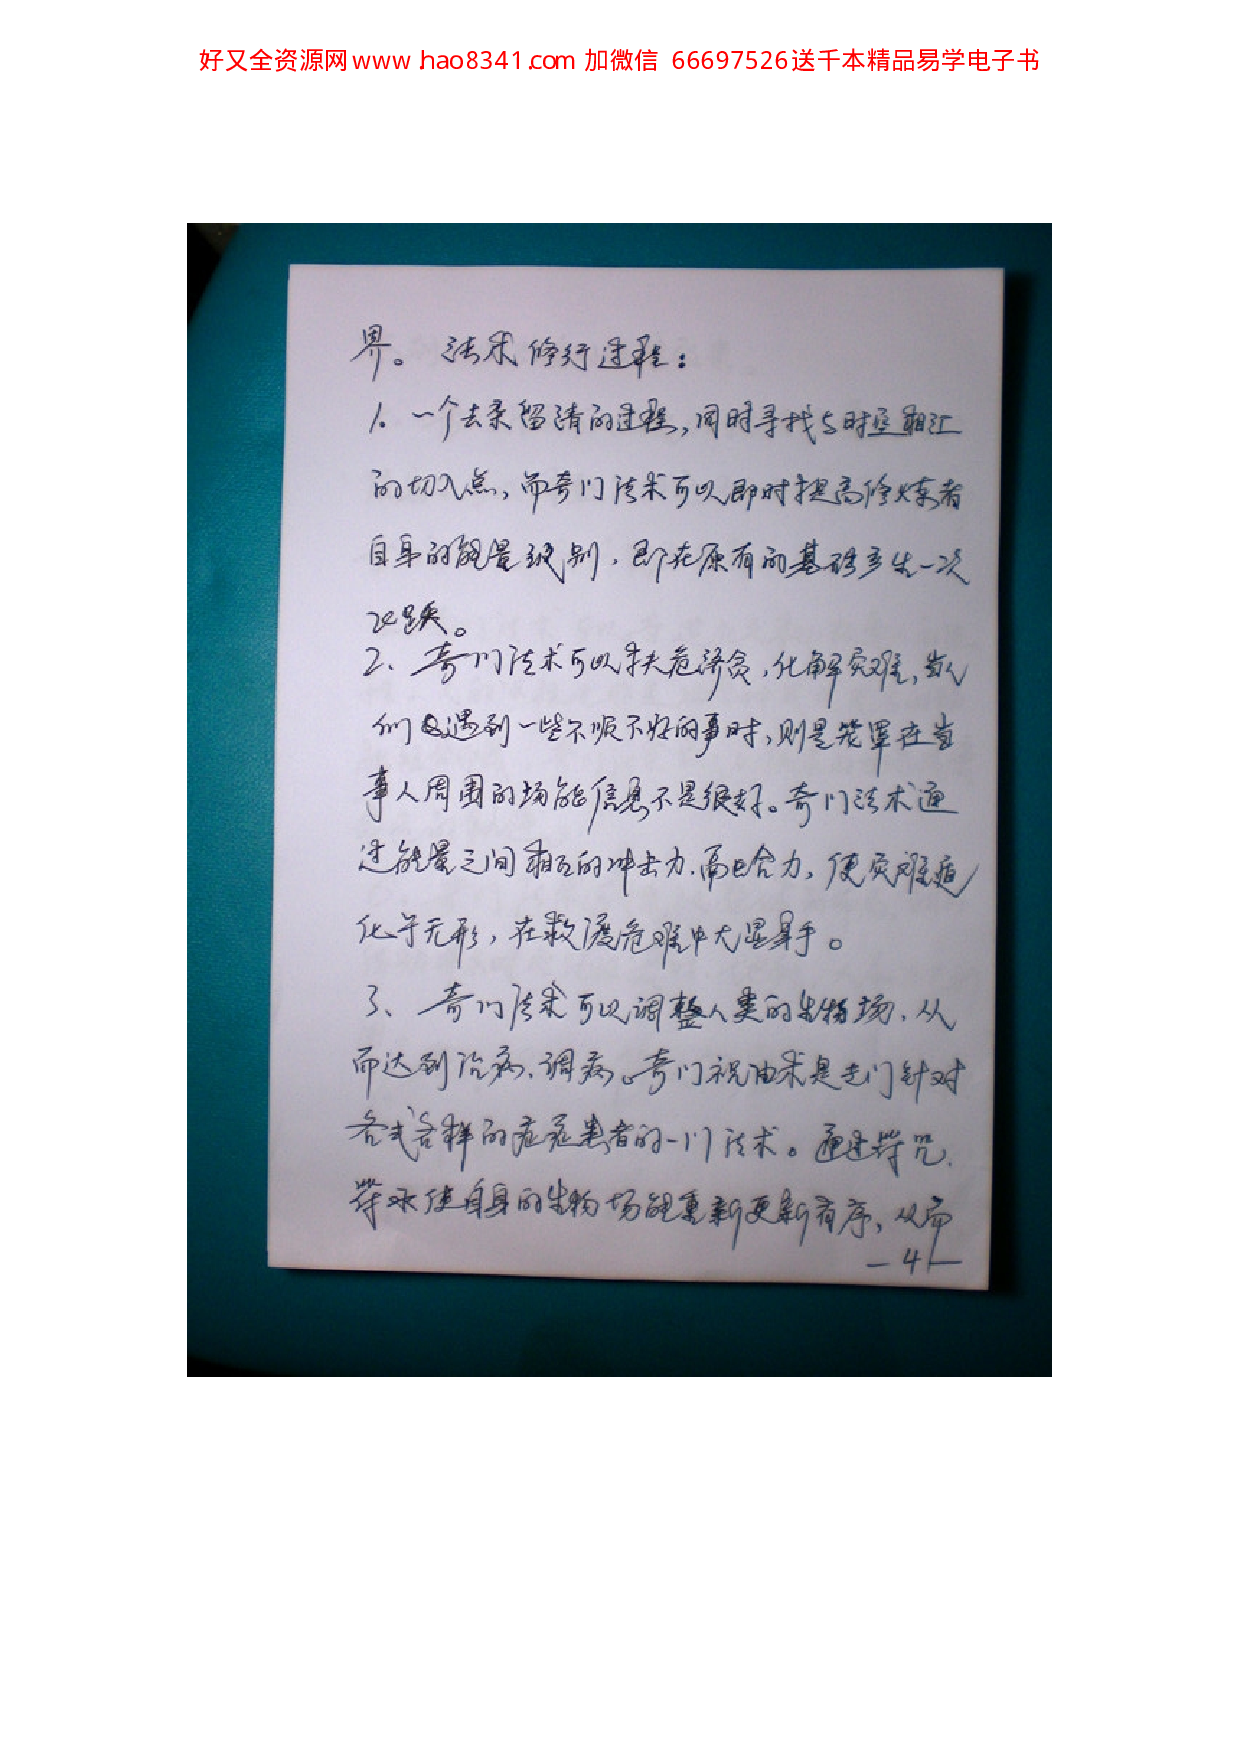 好又全资源网www.hao8341.com 加微信 66697526送千本精品易学电子书
界。法术修行过程：
1. 一个去杂留清的过程，同时寻找与时空相汇
的切入点，而奇门法术可以即时提高修炼者
自身的能量级别，即在原有的基础产生一次
飞跃。
2、奇门法术可以扶危济贫，化解灾难，当人
们遇到一些不顺不好的事时，则是笼罩在当
事人周围的场能信息不是很好。奇门法术通
过能量之间相互的冲击力、合力，使灾难
化于无形，在救渡危难中大显身手。
3、奇门法术可以调整人类的生物场，从
而达到治病、调病。奇门祝由术是专门针对
各式各样的症患者的一门法术。通过符咒、
符水使自身的生物场能重新更新有序，从而
—4—